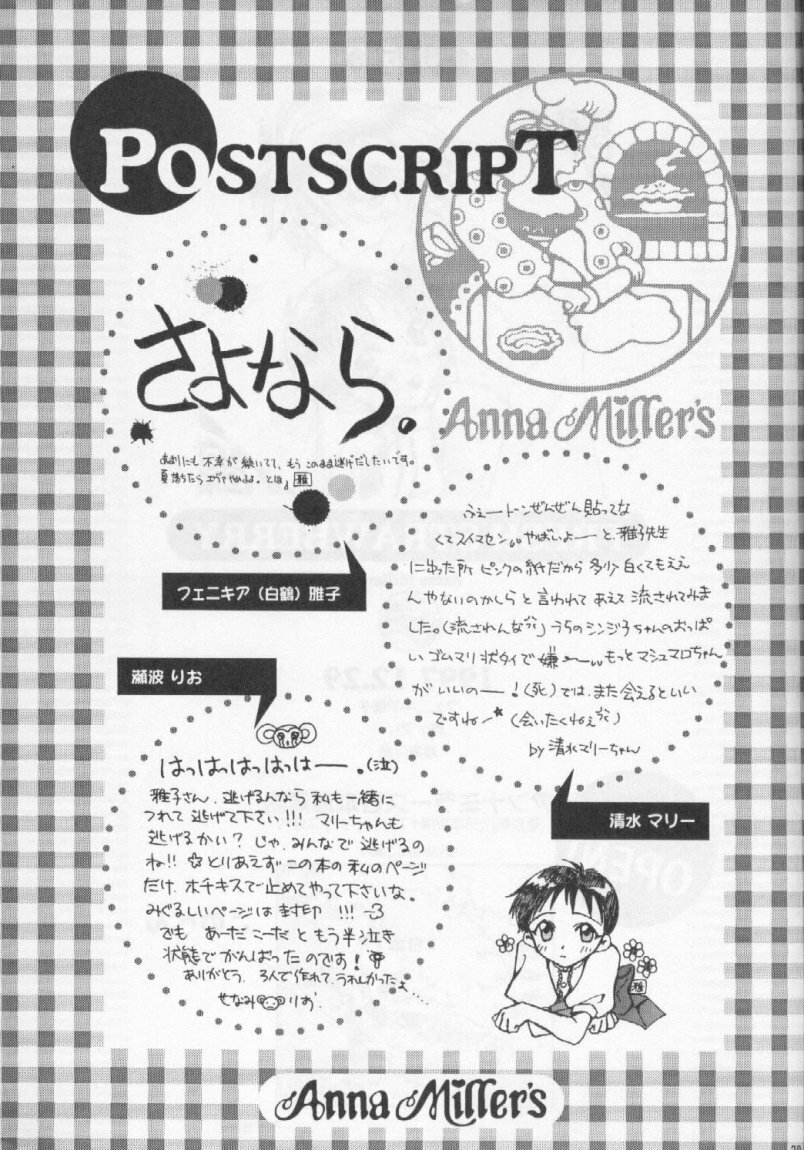 POSTSCRIPT
Anna Miller's
さよなら。
あまりにも不幸が続いて、もうこのまま逃げだしたいです。
夏落ちたらエヴァやめるよ。とほ。雅
フェニキア（白鶴）雅子
ふぇートーンぜんぜん貼ってな
くてスイマセン。やばいよーーと、雅子先生
に云った所ピンクの紙だから多少白くてもええ
んやないのかしらと言われてあえて流されてみま
した。(流されんな)うちのシンジ子ちゃんのおっぱ
いゴムマリ状タイで嫌ーもっとマシュマロちゃん
がいいのー！(死)では、また会えるといい
ですね★(会いたくねぇ)
by清水マリーちゃん
清水 マリー
瀬波 りお
はっはっはっはっはーー。(泣)
雅子さん、逃げるんなら私も一緒に
つれて逃げて下さい!!! マリーちゃんも
逃げるかい？じゃ、みんなで逃げるの
ね!! ☆とりあえずこの本の私のページ
だけ ホチキスで止めてやって下さいな。
みぐるしいページは封印 !!!
でも あーだこーだともう半泣き
状態でがんばったのです!
ありがとう、3人で作れて、うれしかったよ....
せなみ りお
雅
Anna Miller's